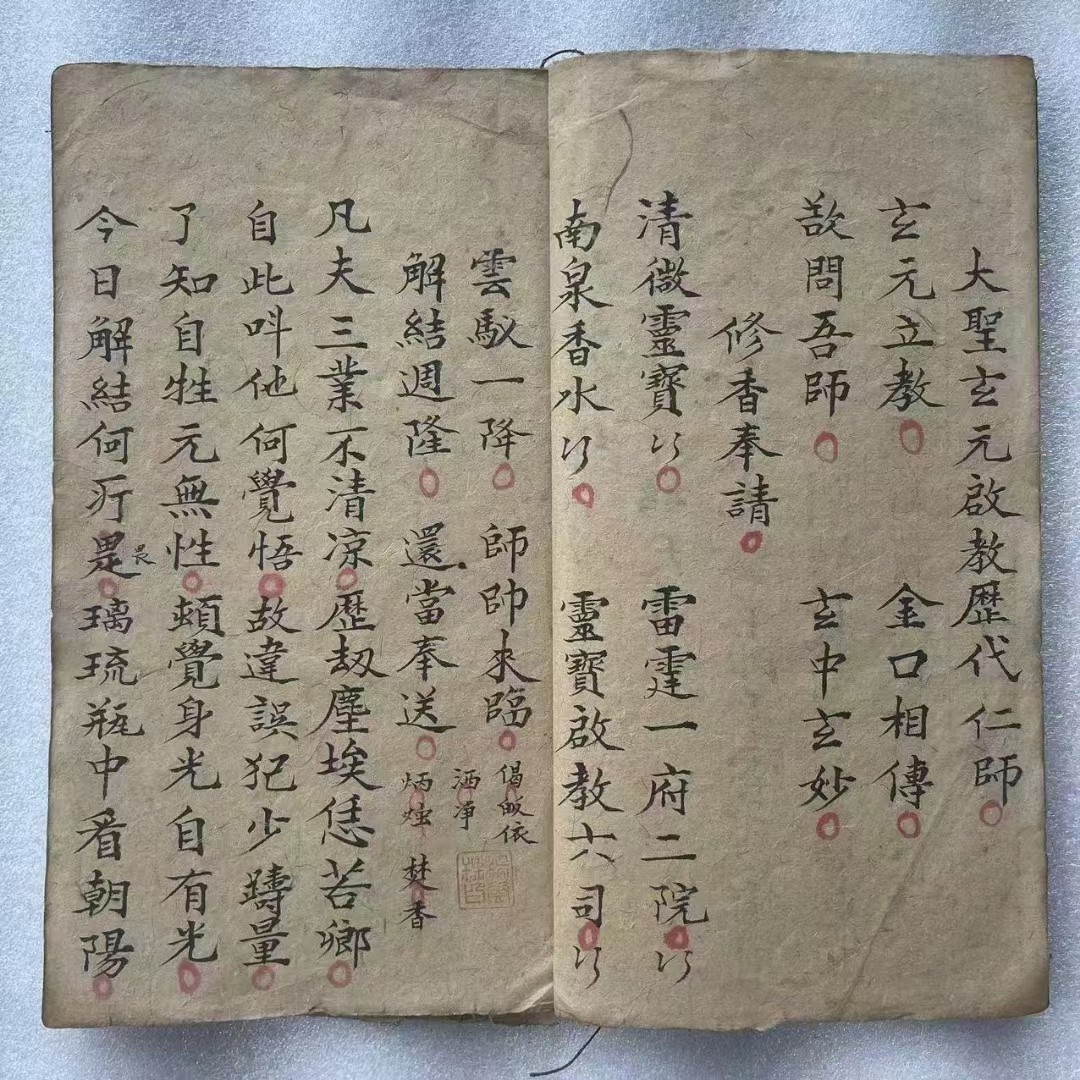 大聖玄元啟教歷代仁師
玄元立教 金口相傳
啟問吾師 玄中玄妙
修香奉請
清微靈寶 雷霆一府二院
南泉香水 靈寶啟教六司
雲馭一降 師帥來臨 偈皈依
洒净
解結週隆 還當奉送 炳烛 焚香
凡夫三業不清凉歷刼塵埃恁苦鄉
自此呌他何覺悟故違誤犯少躊量
了知自性元無性頓覺身光自有光
今日解結何所是畏璃琉瓶中看朝陽